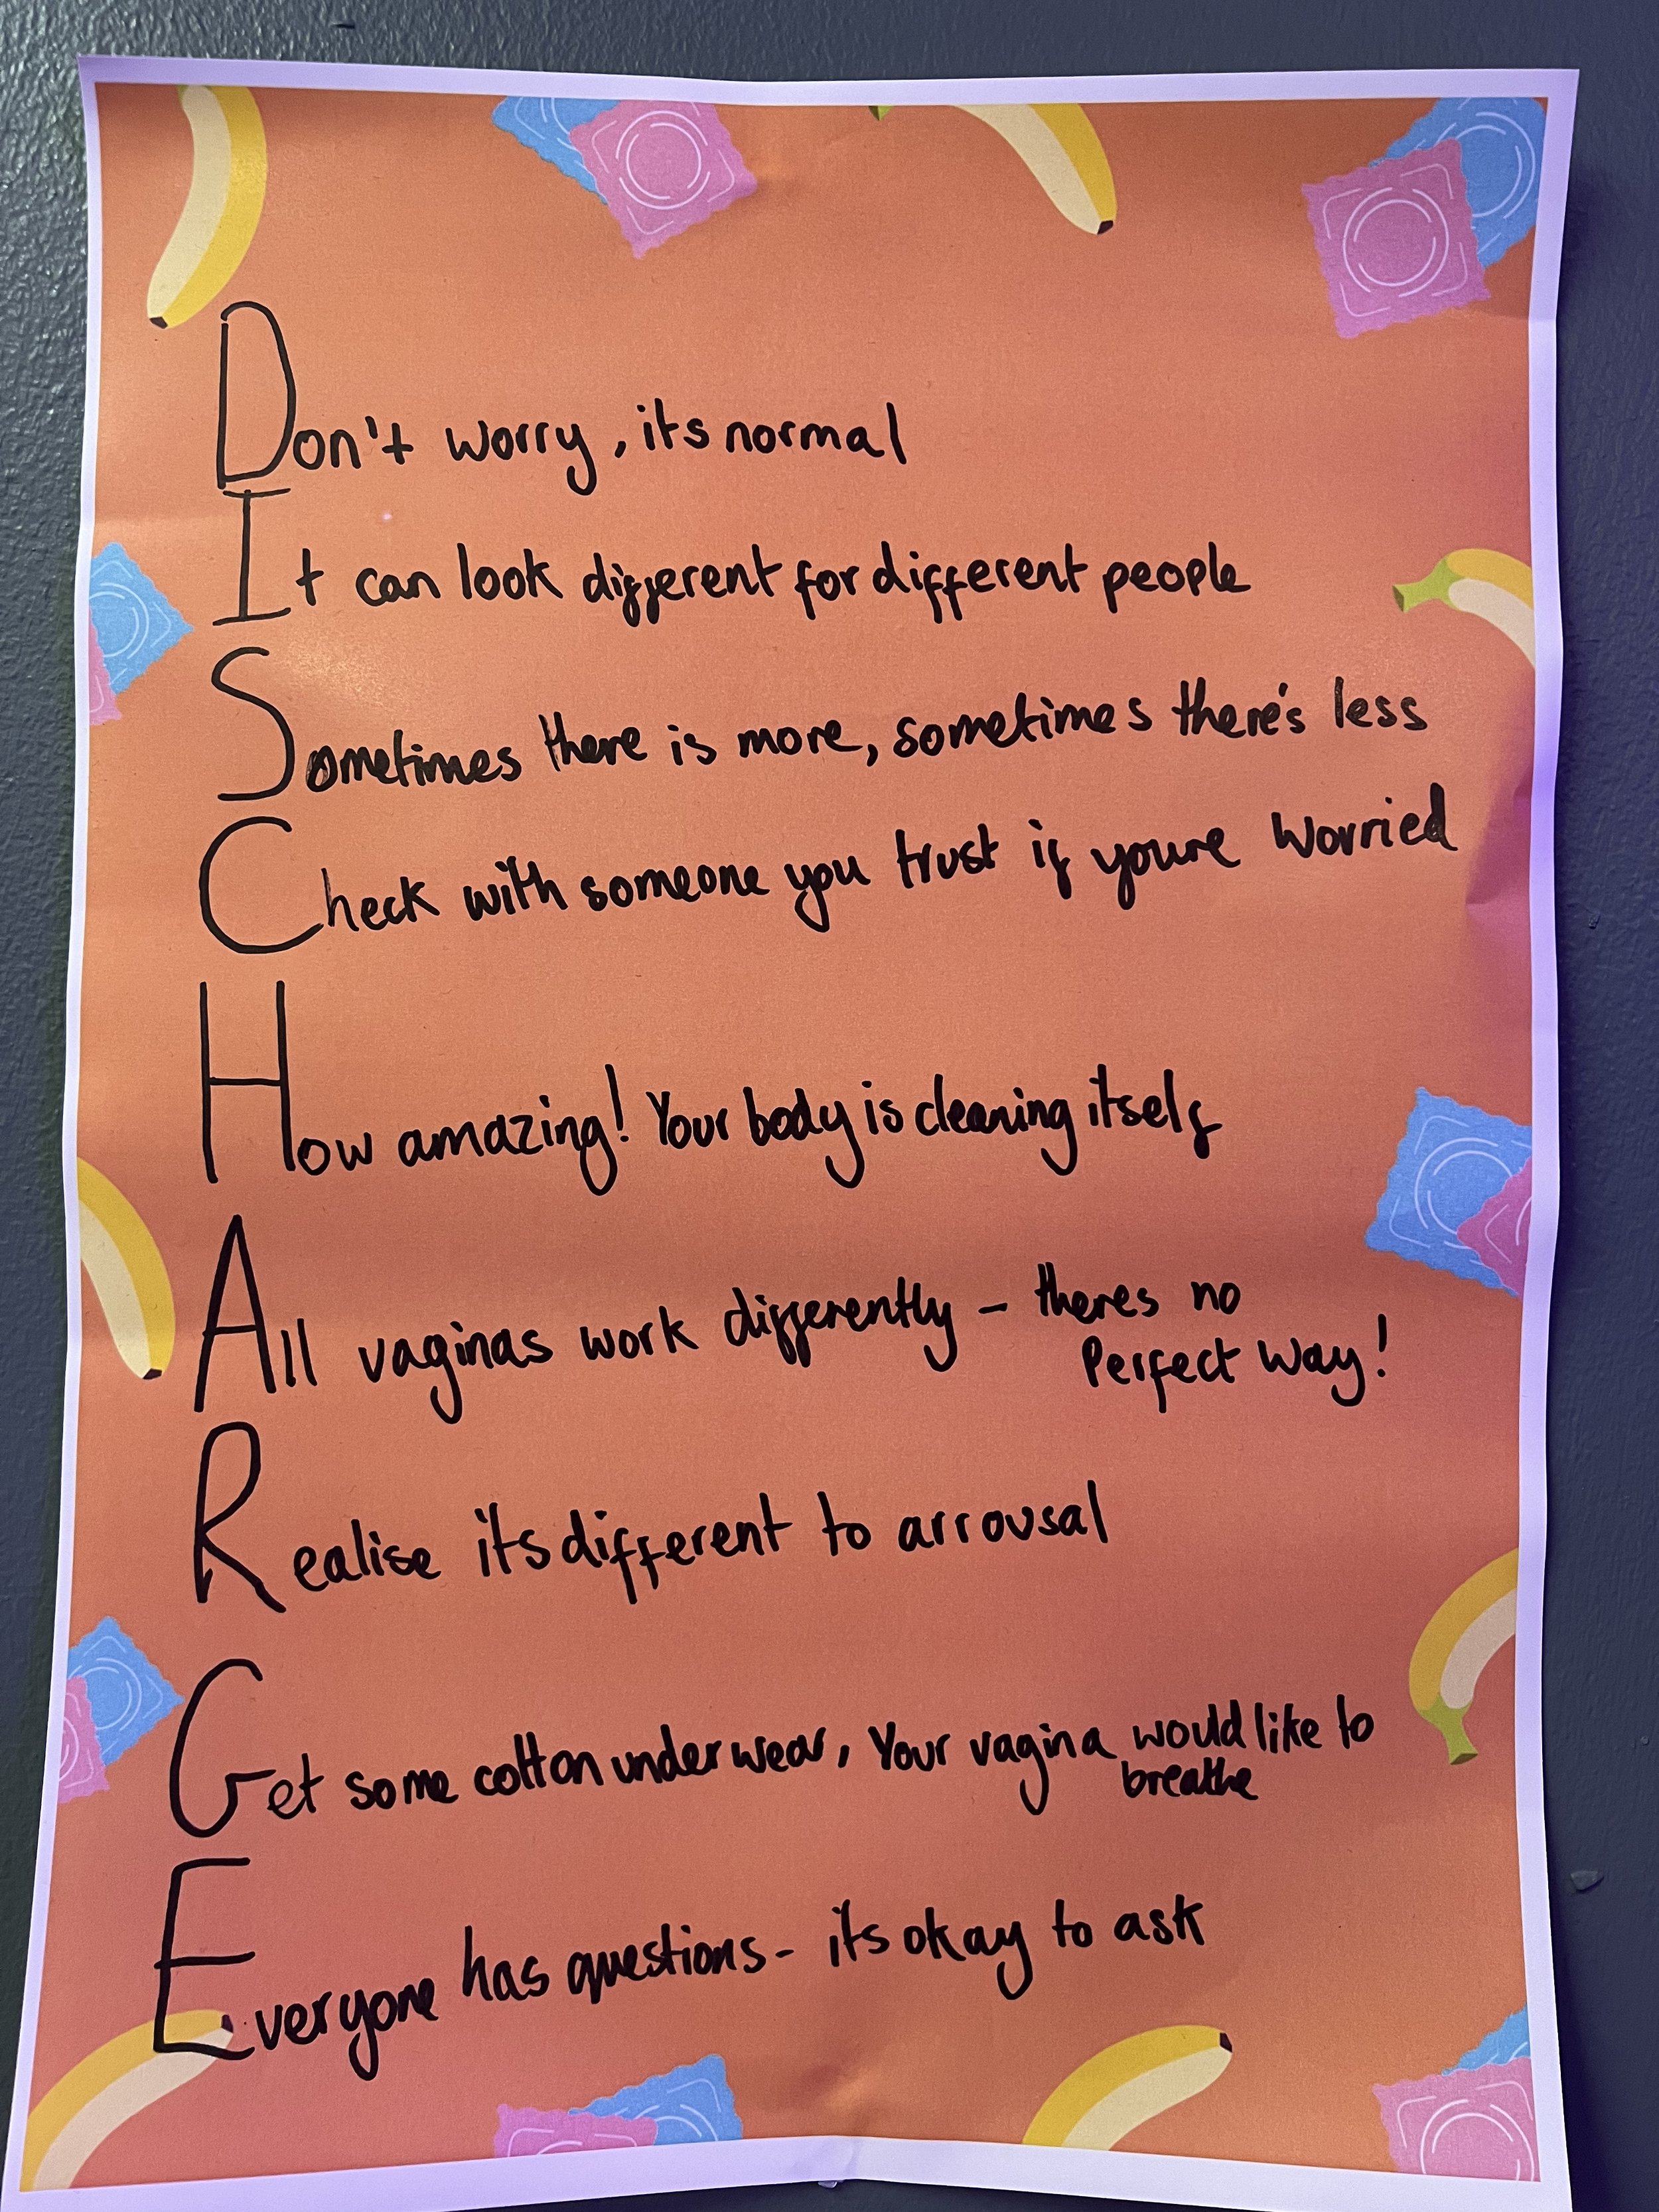 Don't worry, its normal
It can look different for different people
Sometimes there is more, sometimes there's less
Check with someone you trust if youre worried
How amazing! Your body is cleaning itself
All vaginas work differently - theres no
Perfect way!
Realise its different to arrousal
Get some cotton underwear, Your vagina would like to
breathe
Everyone has questions - its okay to ask